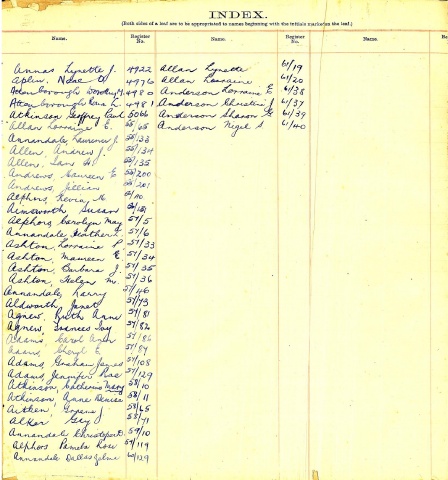 INDEX.
(Both sides of a leaf are to be appropriated to names beginning with the initials marked on the leaf.)
Name. Register No. Name. Register No. Name.
Annas Lynette J. 4922
Aplin, 4976
Attenborough Dorothy 4980
Attenborough L. 4981
Atkinson Geoffrey Paul 5066
Allan Lorraine E. 55/65
Annandale, Laurence J. 55/133
Allen, Andrew J. 55/134
Allen, Jane H. 55/135
Andrews Laureen E 55/200
Andrews, Jillian 55/201
Alphors, Kevin M 56/110
Ainsworth Susan
Alphors Carolyn May 57/5
Annandale Heather. 57/6
Ashton, Lorraine P. 57/33
Ashton, Maureen E. 57/34
Ashton, Barbara J. 57/35
Ashton, Helen M. 57/36
Annandale, Larry 57/46
Aldworth Janet 57/73
Agnew, Ruth Anne 57/81
Agnew, Frances Joy 57/82
Adams, Carol Ann 57/86
Adams, Cheryl E 57/87
Adams, Graham James 57/108
Adams, Jennifer Rae 57/129
Atkinson, Catherine Mary 58/10
Atkinson Anne Denise 58/11
Aitken, J 58/65
Alker Gay 58/71
Annandale Christopher D. 59/10
Alphors Pamela Rose 59/119
Annandale Dallas 60/129
Allan Lynette 61/19
Allan Lorraine 61/20
Anderson Lorraine E 61/38
Anderson Christine J 61/37
Anderson Sharon G 61/39
Anderson Nigel S 61/40